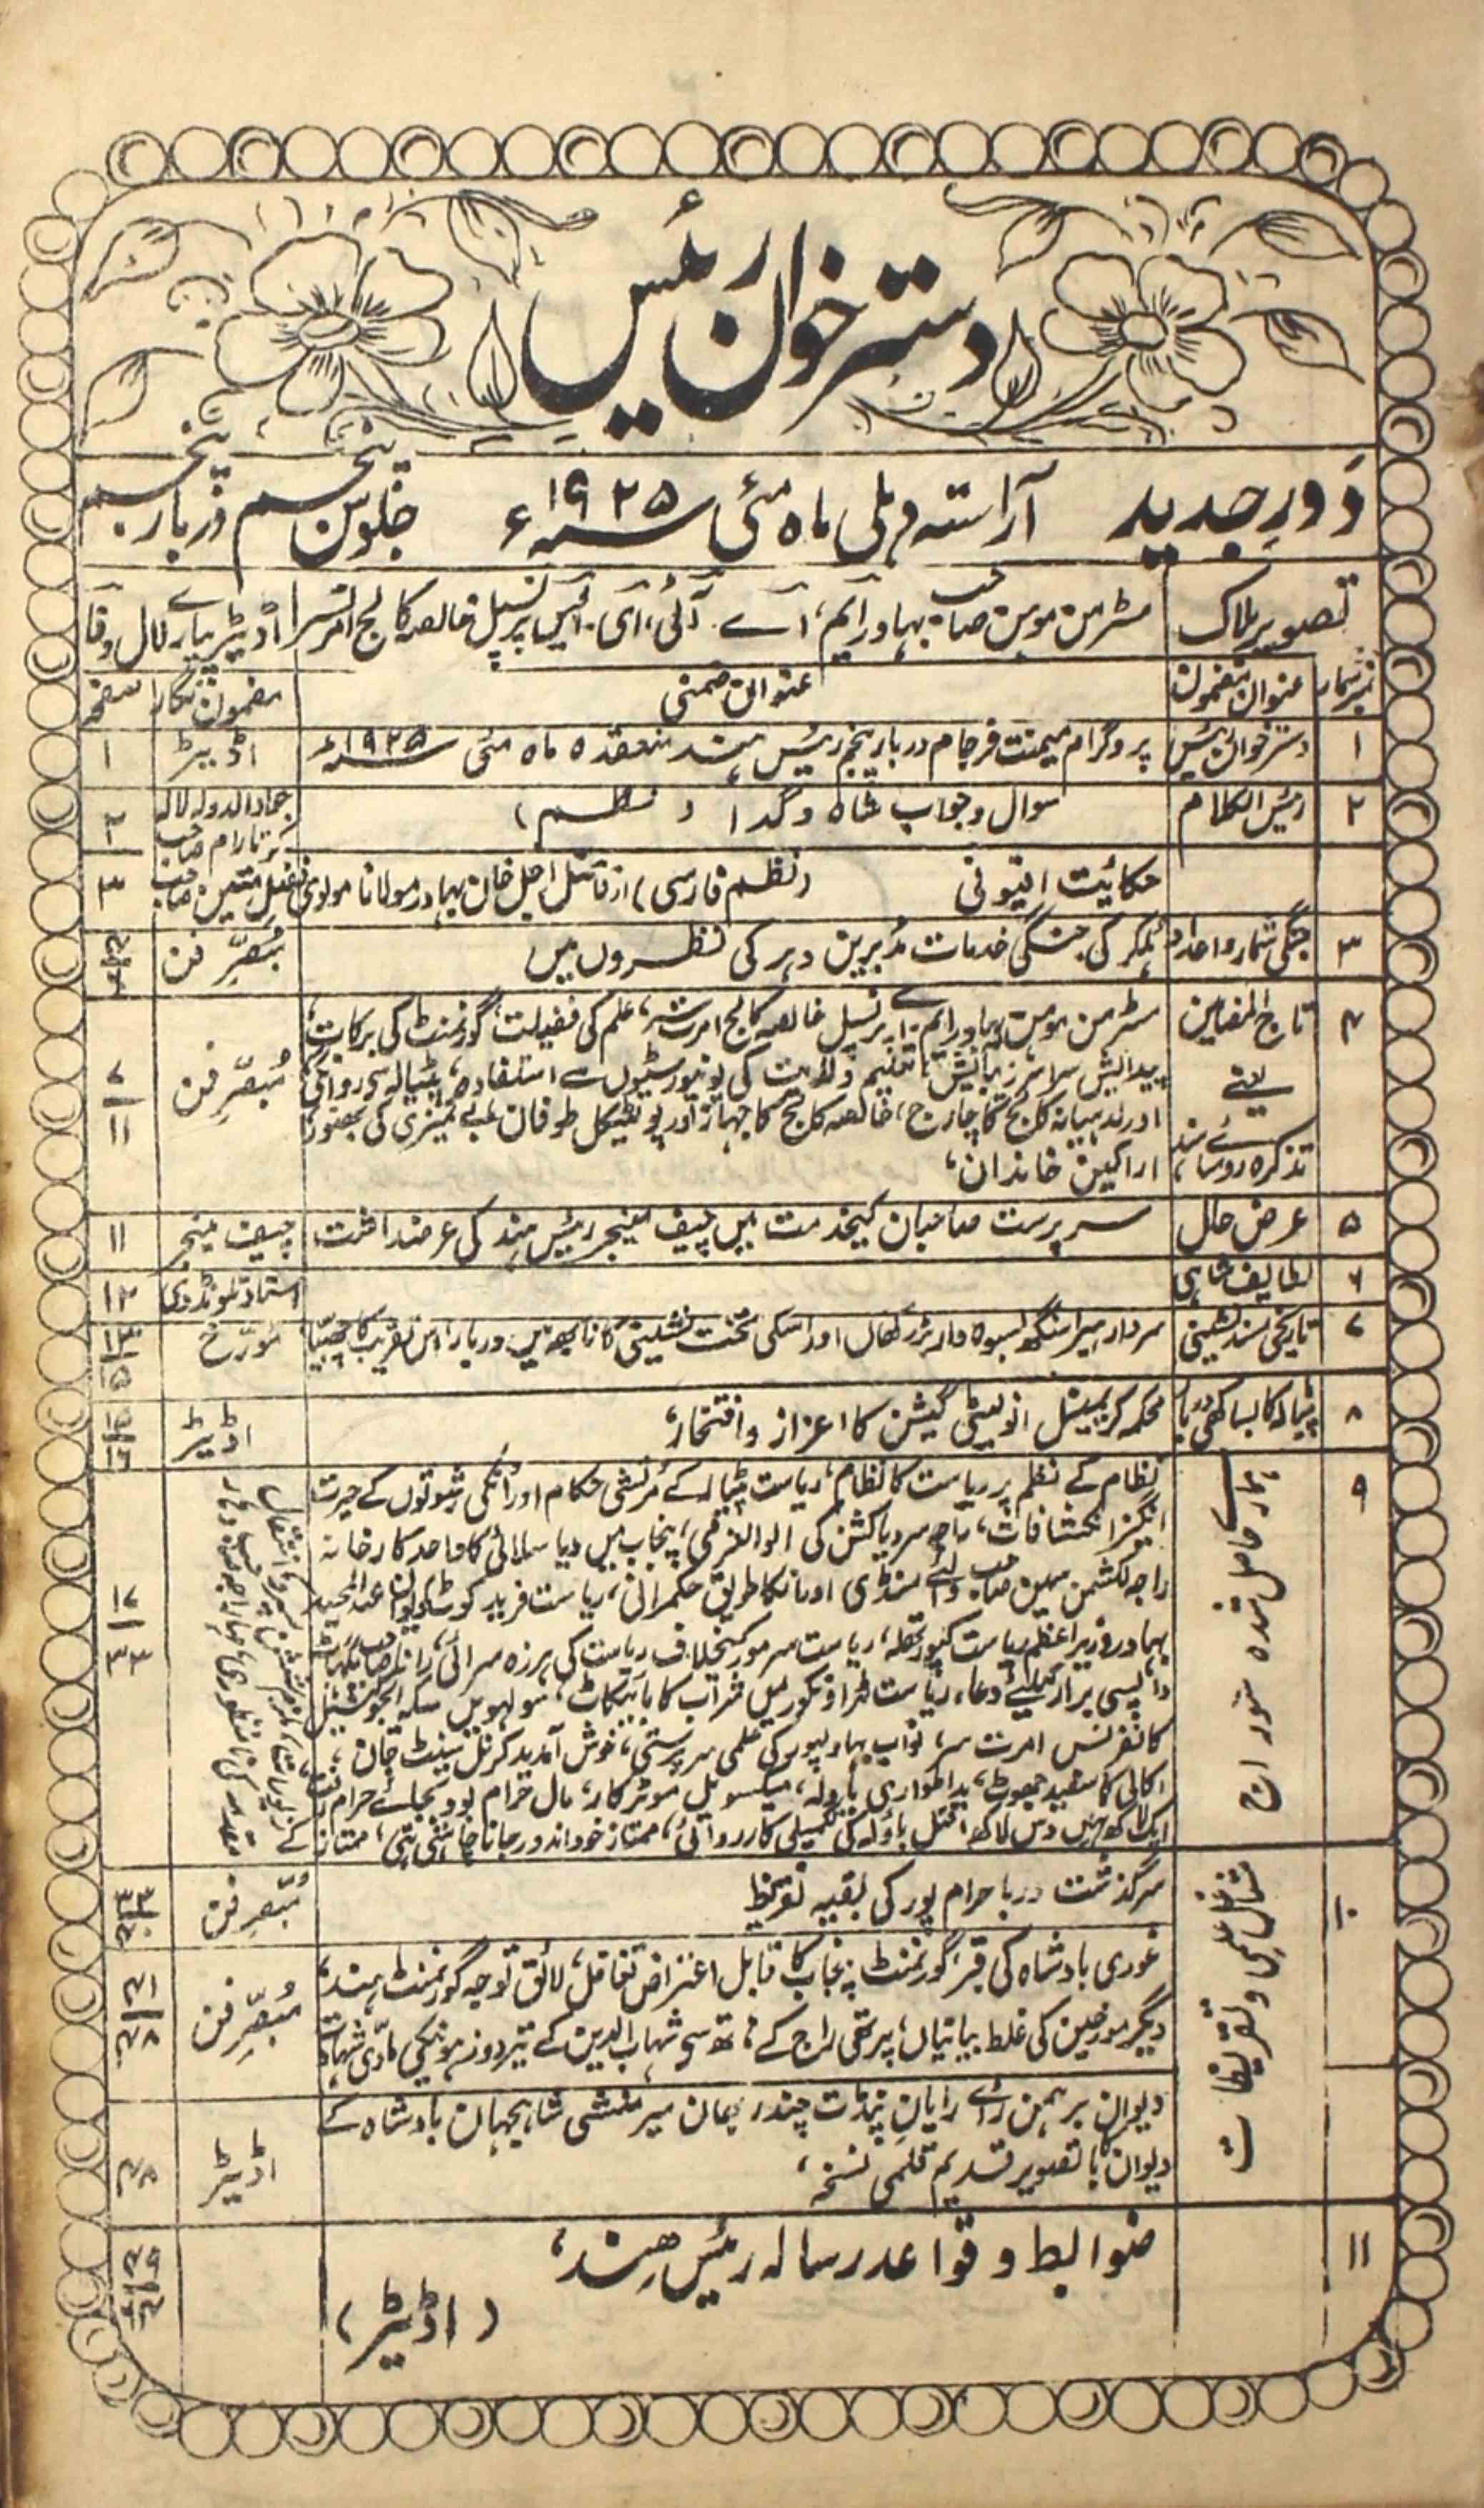 دسترخوان رئیس
دَورِ جدید آراستہ دہلی ماہ مئی ۱۹۲۵ء جلوس پنجم دربار پنجم
تصویر بلاک مسٹر من موہن صاحب بہادر ایم، اے۔ آئی، ای۔ ایس پرنسپل خالصہ کالج امرتسر اڈیٹر پیارے لال وفا
نمبر شمار عنوان مضمون عنوان ضمنی مضمون نگار صفحہ
۱ دسترخوان رئیس پروگرام میمنت فرجام دربار پنجم رئیس ہند منعقدہ ماہ مئی ۱۹۲۵ء اڈیٹر ۱
۲ رئیس الکلام سوال و جواب شاہ و گدا (نظم) لالہ کرتارام صاحب ۲
حکائیت افیونی (نظم فارسی) از قاتل اجل خان بہادر مولانا مولوی فضل متین صاحب ۳
۳ جنگی شمار و اعداد ہلکر کی جنگی خدمات مدبرین دہر کی نظروں میں مُبصّرِ فن
۴ تاج المضامین یعنے تذکرہ روسائے ہند، مسٹر من موہن بہادر ایم۔ اے پرنسپل خالصہ کالج امرتسر، علم کی فضیلت، گورنمنٹ کی برکات، مُبصّرِ فن ۷/۱۱
پیدائش تعلیم ولایت کی یونیورسٹیوں سے استفادہ، پٹیالہ سے روانگی
اور لدہیانہ کالج کا چارج، خالصہ کالج کا جہاز اور پولٹیکل طوفان بے تمیزی کی بھنور،
اراکین خاندان،
۵ عرض حال سرپرست صاحبان کیخدمت میں چیف مینیجر رئیس ہند کی عرضداشت، چیف مینیجر ۱۱
۶ لطایف شاہی استاد تلونڈوی ۱۲
۷ تاریخی مسند نشینی سردار ہیرا سنگھ اور اسکی تخت نشینی دربار اس تقریب کا مورّخ
۸ پٹیالہ کا بساکھی دربار محکمہ کریمینل انویسٹی گیشن کا اعزاز و افتخار، اڈیٹر
۹ ہمارے حاصل شدہ نظام کے نظم پر ریاست کا نظام، ریاست پٹیالہ کے مُرتشی حکام اور اُنکی رشوتوں کے حیرت ۱۷/۳۳
انگیز انکشافات، راجہ سر دیا کشن کی الوالعزمی، پنجاب میں دیا سلائی کا واحد کارخانہ
راجہ لکشمن سین صاحب والئے منڈی اور انکا طریق حکمرانی، ریاست فرید کوٹ، دیوان عبدالحمید
بہادر وزیر اعظم ریاست کپورتھلہ، ریاست سرمور کیخلاف ریاست کی ہرزہ سرائی،
واپسی برار کیلئے دعا، ریاست ٹراونکور میں شراب کا بائیکاٹ، سولہویں سکھ ایجوکیشنل
کانفرنس امرت سر، نواب بہاولپور کی علمی سرپرستی، خوش آمدید کرنل سینٹ جان،
اکالی کا سفید جھوٹ، میکسویل موٹر کار، مال حرام بود بجائے حرام رفت،
ایک لاکھ نہیں دس لاکھ، قتل باؤلہ کی تکمیلی کارروائی، ممتاز
۱۰ مشاغل علمی و تقریظات سرگذشت دربار رام پور کی بقیہ تقریظ مُبصّرِ فن
غوری بادشاہ کی قبر، گورنمنٹ پنجاب کا قابل اعتراض تغافل، لائق توجہ گورنمنٹ ہند، مُبصّرِ فن
دیگر مورخین کی غلط بیانیاں، پرتھی راج کے ہاتھ سے شہاب الدین کے تیر دوز ہونیکی مادّی شہادت
دیوان برہمن رائے رایان پنڈت چندر بھان میر منشی شاہجہان بادشاہ کے اڈیٹر
دیوان کا باتصویر قدیم قلمی نسخہ،
۱۱ ضوابط و قواعد رسالہ رئیس ھند،
(اڈیٹر)